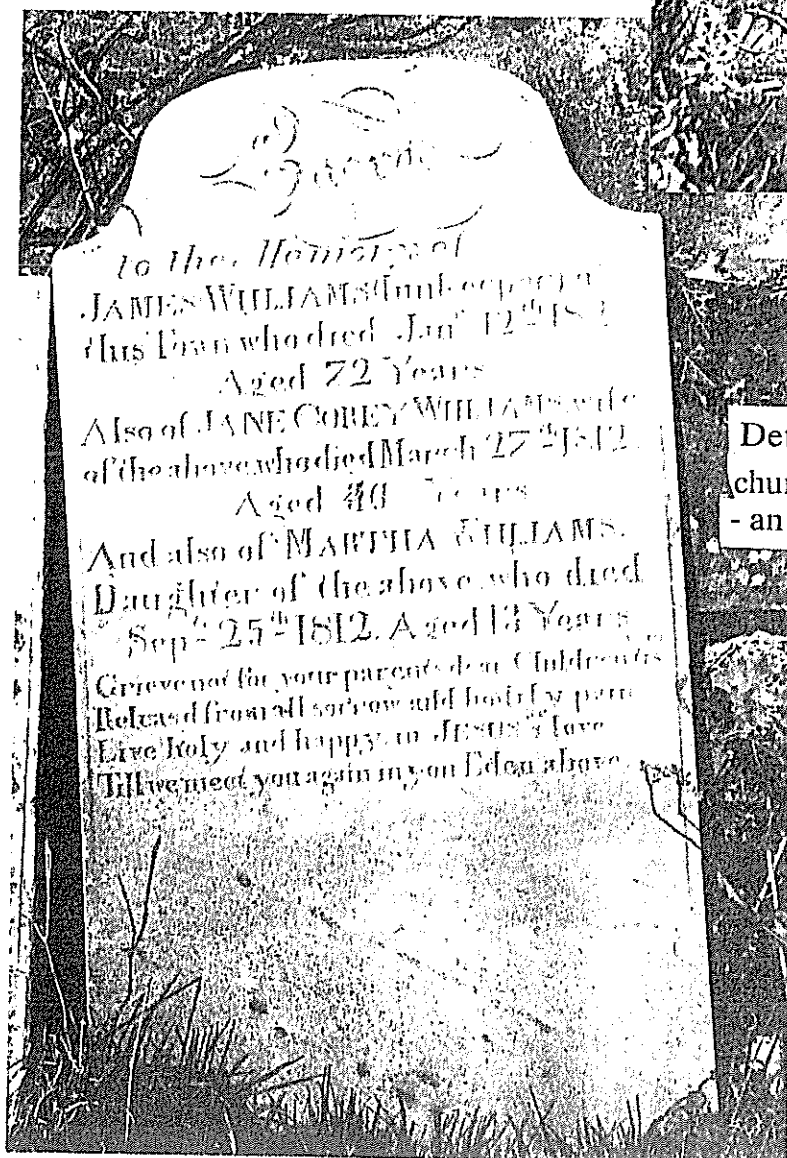 Sacred
to the Memory of
JAMES WILLIAMS (Innkeeper) of
this Town who died Jan.y 12th
Aged 72 Years
Also of JANE COREY WILLIAMS wife
of the above who died March 27th 1812.
Aged Years
And also of MARTHA WILLIAMS,
Daughter of the above who died
Sepr. 25th 1812. Aged 13 Years
Grieve not for your parents dear Children 'tis
Released from all sorrow and bodily pain
Live holy and happy in JESUS's love
Till we meet you again in yon Eden above
12
- an